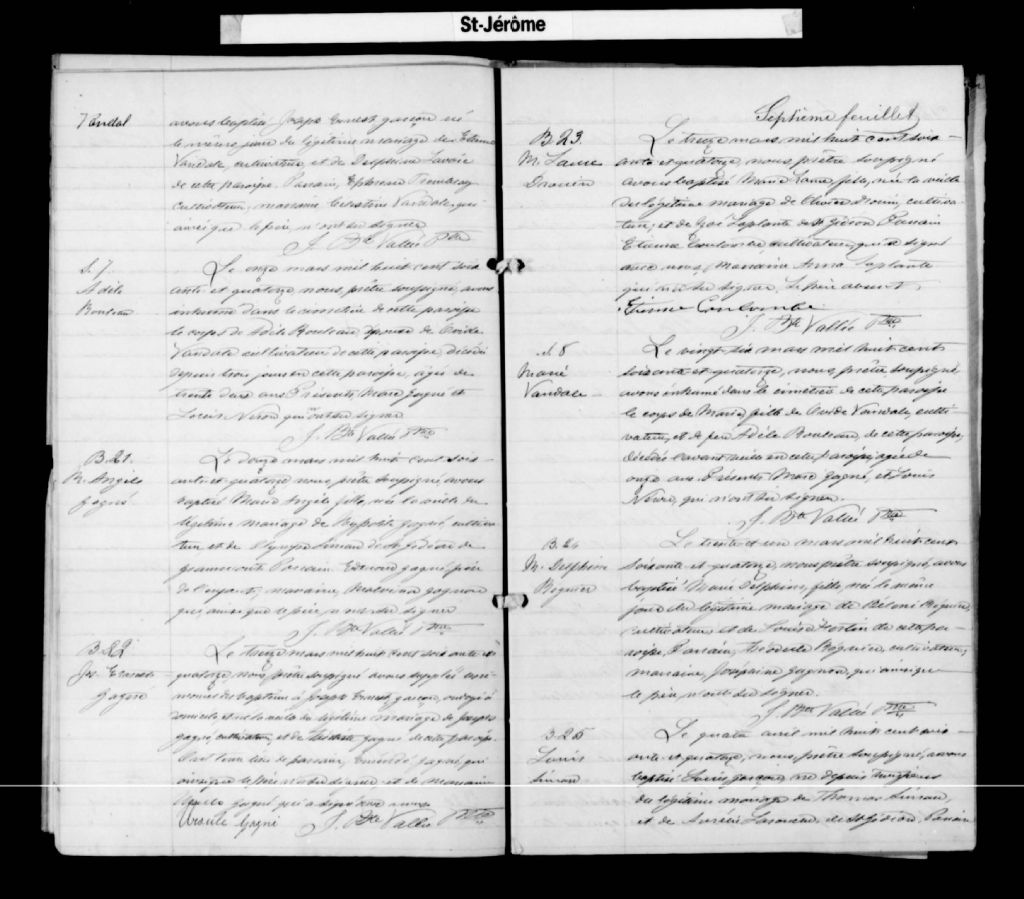 St-Jérôme
Vandal
avons baptisé Joseph Ernest garçon né
le même jour du légitime mariage de Etienne
Vandale cultivateur et de Delphine Lavoie
de cette paroisse. Parrain, Tremblay
cultivateur, marraine Célestine Vandale, qui
ainsi que le père, n'ont su signer
J. Bte Vallée Ptre
S. 7.
Adèle
Bouleau
Le onze mars mil huit cent soix-
ante et quatorze, nous, prêtre soussigné, avons
inhumé dans le cimetière de cette paroisse
le corps de Adèle Bouleau épouse de Ovide
Vandale cultivateur de cette paroisse, décédée
depuis trois jours en cette paroisse, agée de
trente deux ans. Présents, Marc Gagné et
Louis Néron qui n'ont su signer
J. Bte Vallée Ptre
B. 21.
M. Angèle
Gagné
Le douze mars mil huit cent soix-
ante et quatorze nous prêtre soussigné, avons
baptisé Marie Angèle fille, née la veille du
légitime mariage de Hyppolite Gagné, cultiva-
teur et de Olympe Simard de St Gédéon de
Grammont Parrain Edouard Gagné frère
de l'enfant, marraine, Gagnon
qui, ainsi que le père, n'ont su signer
J. Bte Vallée Ptre
B 22
Js. Ernest
Gagné
Le treize mars mil huit cent soixante et
quatorze, nous prêtre soussigné avons suppléé les céré-
monies du baptême à Joseph Ernest, garçon, ondoyé à
domicile et né la veille du légitime mariage de Jacques
Gagné, cultivateur, et de Gagné de cette paroisse.
Ont tenu lieu de parrain, Gagné, qui
ainsi que le père n'a su signer et de marraine
Ursule Gagné qui a signé avec nous
Ursule Gagné J. Bte Vallée Ptre
Septième feuillet
B. 23.
M. Laure
Drouin
Le treize mars, mil huit cent soix-
ante et quatorze, nous, prêtre soussigné
avons baptisé Marie Laure fille, née la veille
du légitime mariage de Olivier Drouin, cultiva-
teur, et de Zoé Laplante de St Gédéon Parrain
Etienne Coulombe cultivateur, qui a signé
avec nous, Marraine Anna Laplante
qui n'a su signer. Le père absent.
Etienne Coulombe
J. Bte Vallée Ptre
S. 8
Marie
Vandale
Le vingt-six mars mil huit cent
soixante et quatorze, nous, prêtre soussigné,
avons inhumé dans le cimetière de cette paroisse
le corps de Marie, fille de Ovide Vandale, culti-
vateur, et de feu Adèle Bouleau, de cette paroisse,
décédée l'avant veille en cette paroisse, agée de
onze ans. Présents, Marc Gagné, et Louis
Néron, qui n'ont su signer.
J. Bte Vallée Ptre
B. 24
M. Delphine
Begnier
Le trente et un mars mil huit cent
soixante et quatorze, nous prêtre soussigné, avons
baptisé Marie Delphine, fille, née le même
jour du légitime mariage de Béloni Begnier,
cultivateur, et de Louise Fortin de cette pa-
roisse, Parrain, Théodule Begnier, cultivateur,
marraine, Joséphine Gagnon, qui ainsi que
le père, n'ont su signer.
J. Bte Vallée Ptre
B 25
Louis
Simard
Le quatre avril mil huit cent soix-
ante et quatorze, nous, prêtre soussigné, avons
baptisé Louis garçon, né depuis huit jours
du légitime mariage de Thomas Simard,
et de Aurélie de St Gédéon, Parrain